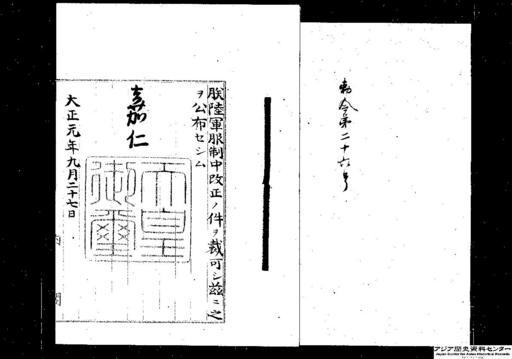 勅令第二十六号
朕陸軍服制中改正ノ件ヲ裁可シ茲ニ之
ヲ公布セシム
嘉仁
天皇御璽
大正元年九月二十七日
内閣
アジア歴史資料センター
Japan Center for Asian Historical Records